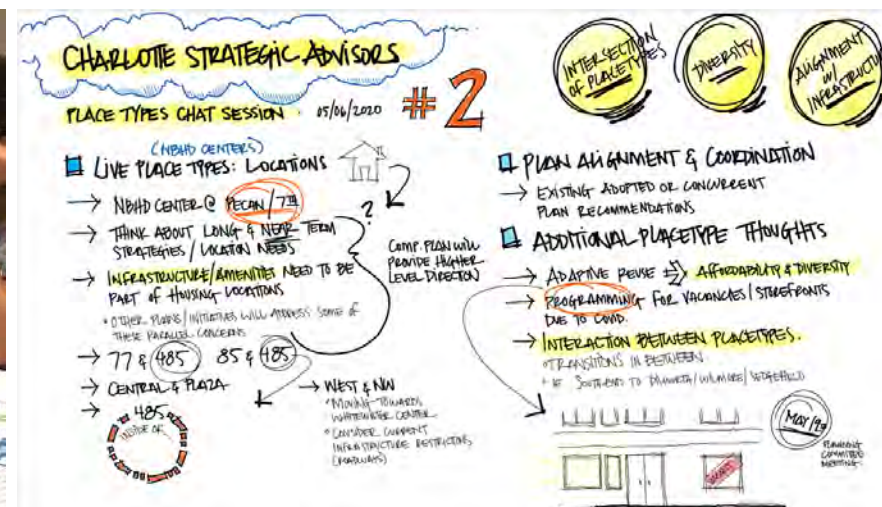 CHARLOTTE STRATEGIC ADVISORS
PLACE TYPES CHAT SESSION 05/06/2020 #2
(NBHD CENTERS)
LIVE PLACE TYPES: LOCATIONS
→ NBHD CENTER @ PECAN/7TH
→ THINK ABOUT LONG & NEAR TERM
STRATEGIES/LOCATION NEEDS
→ INFRASTRUCTURE/AMENITIES NEED TO BE
PART OF HOUSING LOCATIONS
• OTHER PLANS/INITIATIVES WILL ADDRESS SOME OF
THESE PARALLEL CONCERNS
→ 77 & 485 85 & 485
→ CENTRAL & PLAZA
→ 485
INSIDE OF
?
COMP. PLAN WILL
PROVIDE HIGHER
LEVEL DIRECTION
→ WEST & NW
• MOVING TOWARDS
WHITEWATER CENTER
• CONSIDER CURRENT
INFRASTRUCTURE RESTRICTIONS
(ROADWAYS)
INTERSECTION
OF PLACETYPES
DIVERSITY
ALIGNMENT
W/
INFRASTRUCTURE
PLAN ALIGNMENT & COORDINATION
→ EXISTING ADOPTED OR CONCURRENT
PLAN RECOMMENDATIONS
ADDITIONAL PLACETYPE THOUGHTS
→ ADAPTIVE REUSE ⇒ AFFORDABILITY & DIVERSITY
→ PROGRAMMING FOR VACANCIES/STOREFRONTS
DUE TO COVID.
→ INTERACTION BETWEEN PLACETYPES.
• TRANSITIONS IN BETWEEN
SOUTHEND TO DILWORTH/WILMORE/SEDGEFIELD
MAY/
PLANNING
COMMITTEE
MEETING